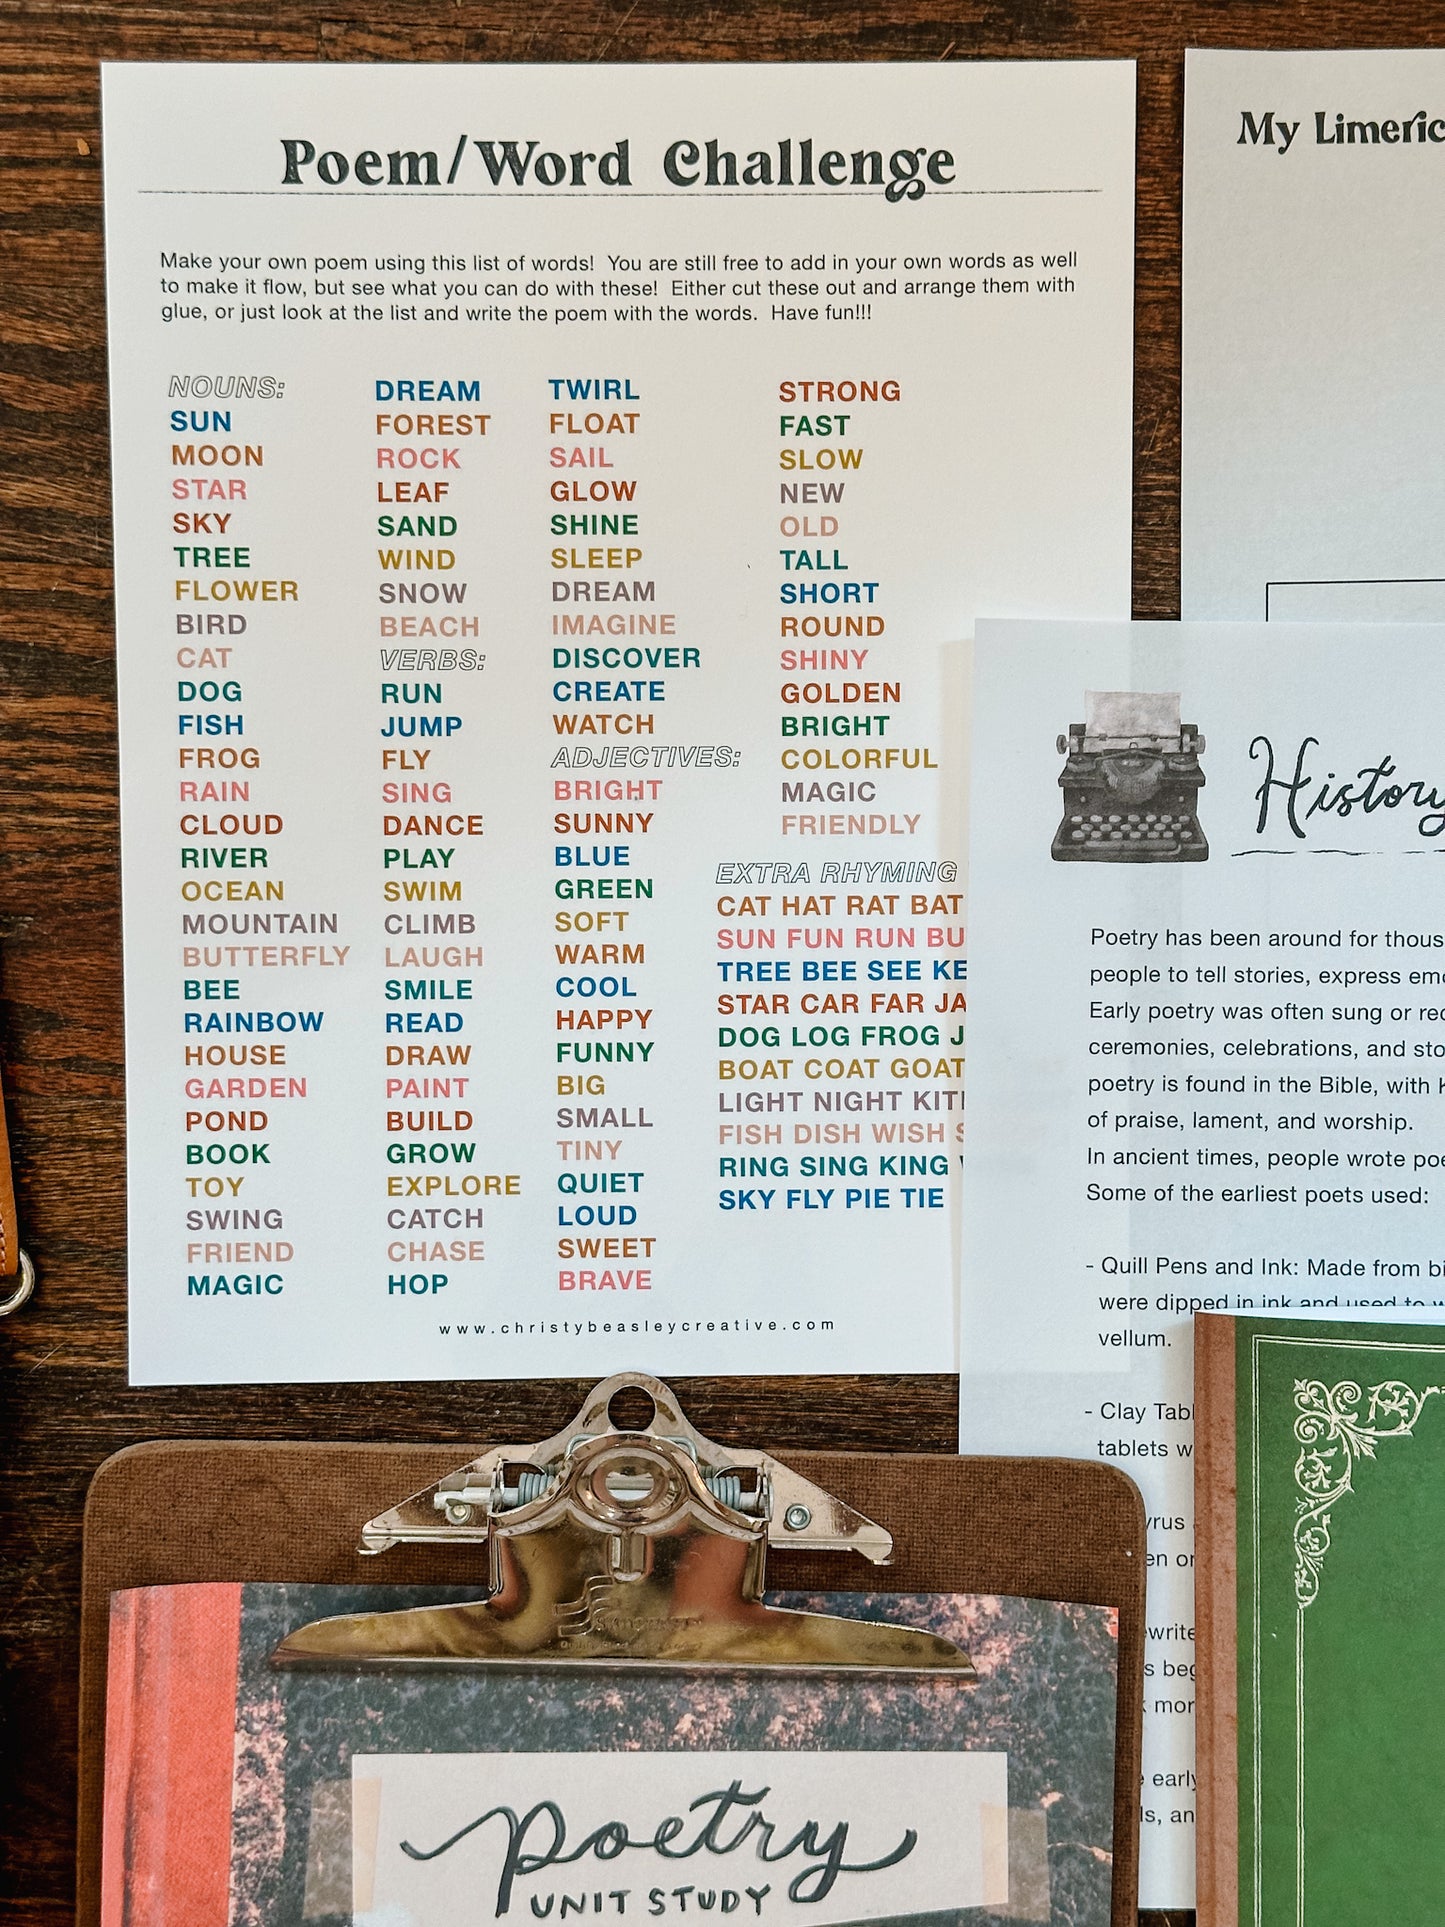 Poem/Word Challenge
Make your own poem using this list of words! You are still free to add in your own words as well
to make it flow, but see what you can do with these! Either cut these out and arrange them with
glue, or just look at the list and write the poem with the words. Have fun!!!
NOUNS:
SUN
MOON
STAR
SKY
TREE
FLOWER
BIRD
CAT
DOG
FISH
FROG
RAIN
CLOUD
RIVER
OCEAN
MOUNTAIN
BUTTERFLY
BEE
RAINBOW
HOUSE
GARDEN
POND
BOOK
TOY
SWING
FRIEND
MAGIC
DREAM
FOREST
ROCK
LEAF
SAND
WIND
SNOW
BEACH
VERBS:
RUN
JUMP
FLY
SING
DANCE
PLAY
SWIM
CLIMB
LAUGH
SMILE
READ
DRAW
PAINT
BUILD
GROW
EXPLORE
CATCH
CHASE
HOP
TWIRL
FLOAT
SAIL
GLOW
SHINE
SLEEP
DREAM
IMAGINE
DISCOVER
CREATE
WATCH
ADJECTIVES:
BRIGHT
SUNNY
BLUE
GREEN
SOFT
WARM
COOL
HAPPY
FUNNY
BIG
SMALL
TINY
QUIET
LOUD
SWEET
BRAVE
STRONG
FAST
SLOW
NEW
OLD
TALL
SHORT
ROUND
SHINY
GOLDEN
BRIGHT
COLORFUL
MAGIC
FRIENDLY
EXTRA RHYMING
CAT HAT RAT BAT
SUN FUN RUN BU
TREE BEE SEE KE
STAR CAR FAR JA
DOG LOG FROG J
BOAT COAT GOAT
LIGHT NIGHT KIT
FISH DISH WISH S
RING SING KING
SKY FLY PIE TIE
www.christybeasleycreative.com
My Limeric
History
Poetry has been around for thous
people to tell stories, express emo
Early poetry was often sung or rec
ceremonies, celebrations, and sto
poetry is found in the Bible, with
of praise, lament, and worship.
In ancient times, people wrote poe
Some of the earliest poets used:
- Quill Pens and Ink: Made from bi
were dipped in ink and used to w
vellum.
- Clay Tabl
tablets w
yrus
en or
write
s beg
mor
early
ls, an
poetry
UNIT STUDY